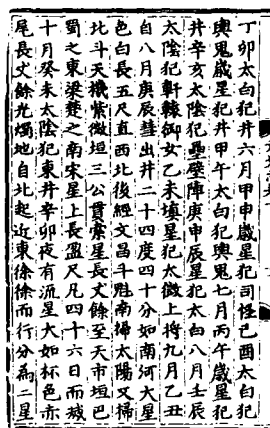 丁卯太白犯井六月甲申歲星犯司怪己酉太白犯
輿鬼歲星犯井甲午太白犯輿鬼七月丙午歲星犯
井辛亥太陰犯壘壁陣庚申辰星犯太白八月壬辰
太陰犯軒轅御女乙未填星犯太微上將九月乙丑
自八月庚辰彗出井二十四度四十分如南河大星
色白長五尺直西北後經文昌斗魁南掃太陽又掃
北斗天機紫微垣三公貫索星長丈餘至天市垣巴
蜀之東梁楚之南宋星上長盈尺凡四十六日而滅
十月癸未太陰犯東井辛卯夜有流星大如杯色赤
尾長丈餘光燭地自北起近東徐徐而行分為二星